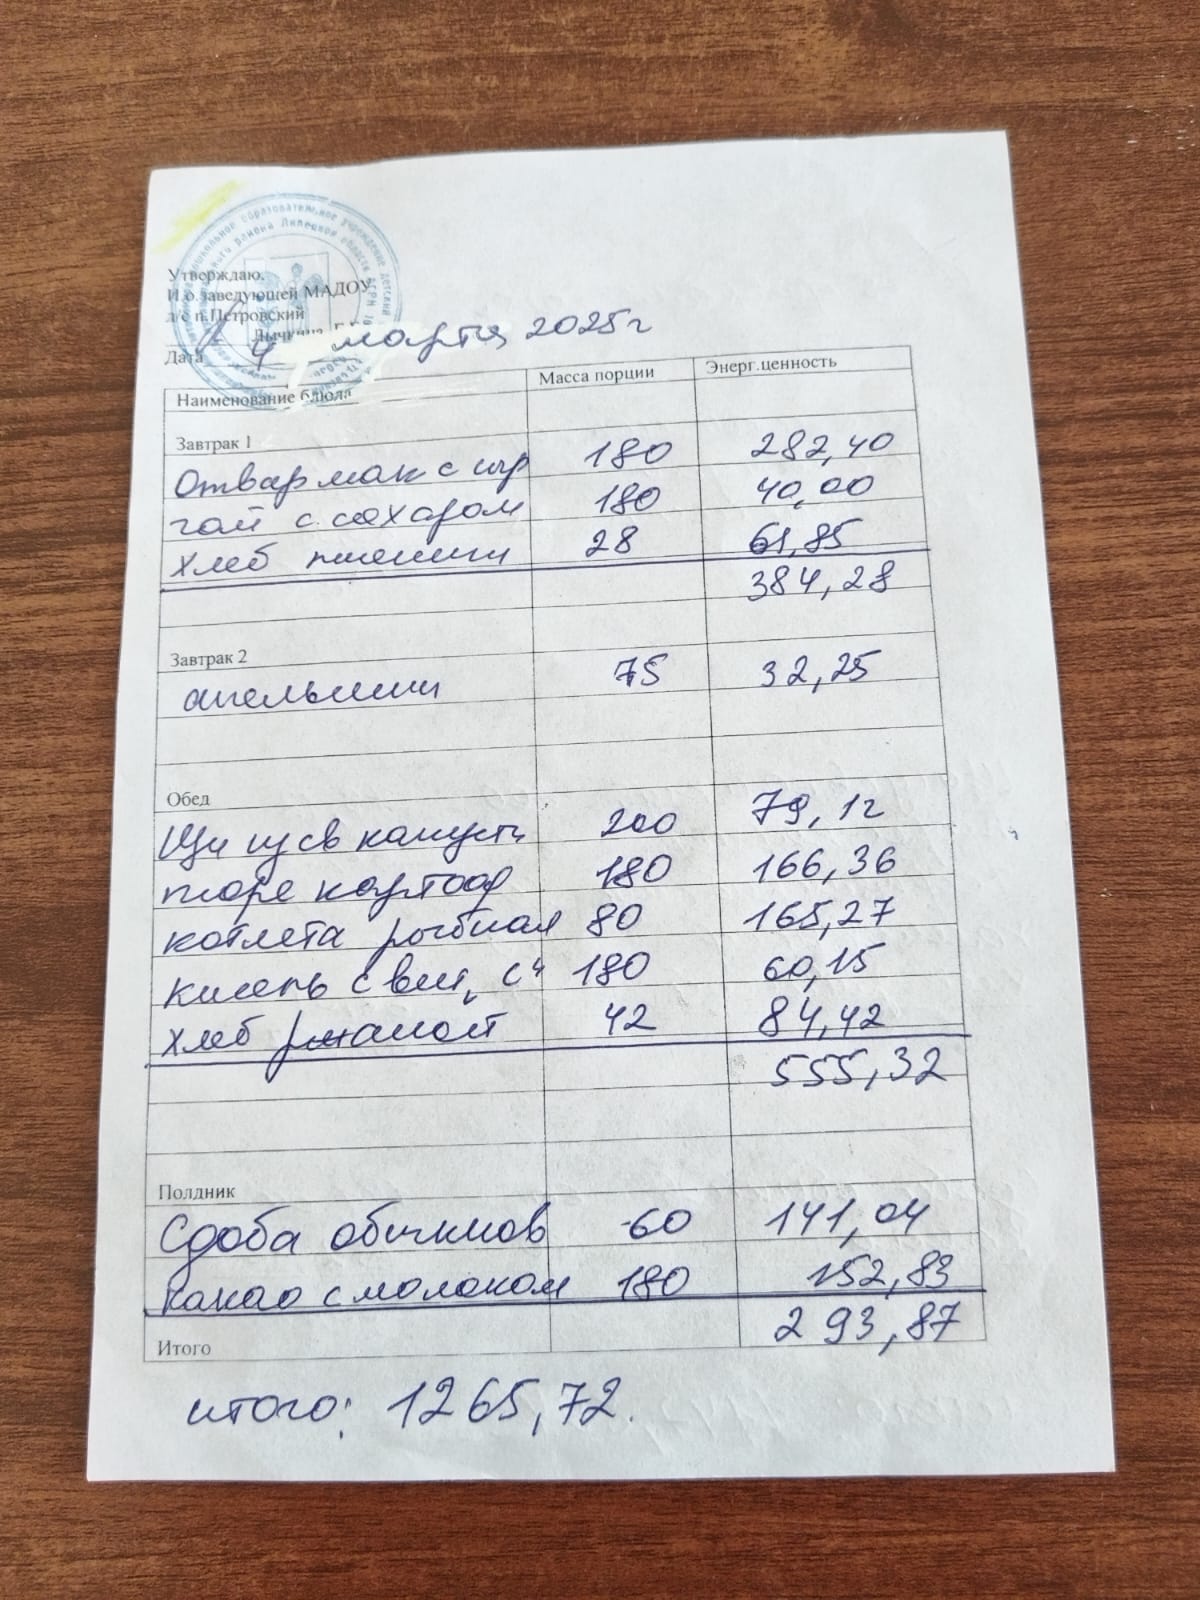 Утверждаю.
И.о.заведующей МАДОУ
д/с п.Петровский
Дата 4 марта 2025г
Наименование блюда Масса порции Энерг.ценность
Завтрак 1
Отвар мак с сыр 180 282,40
чай с сахаром 180 40,00
хлеб пшенич 28 61,85
384,28
Завтрак 2
апельсин 75 32,25
Обед
Щи из св капусты 200 79,12
пюре картоф 180 166,36
котлета рыбная 80 165,27
кисель с вит, С 180 60,15
хлеб ржаной 42 84,42
555,32
Полдник
Сдоба обыкнов 60 141,04
какао с молоком 180 152,83
293,87
Итого
итого: 1265,72.